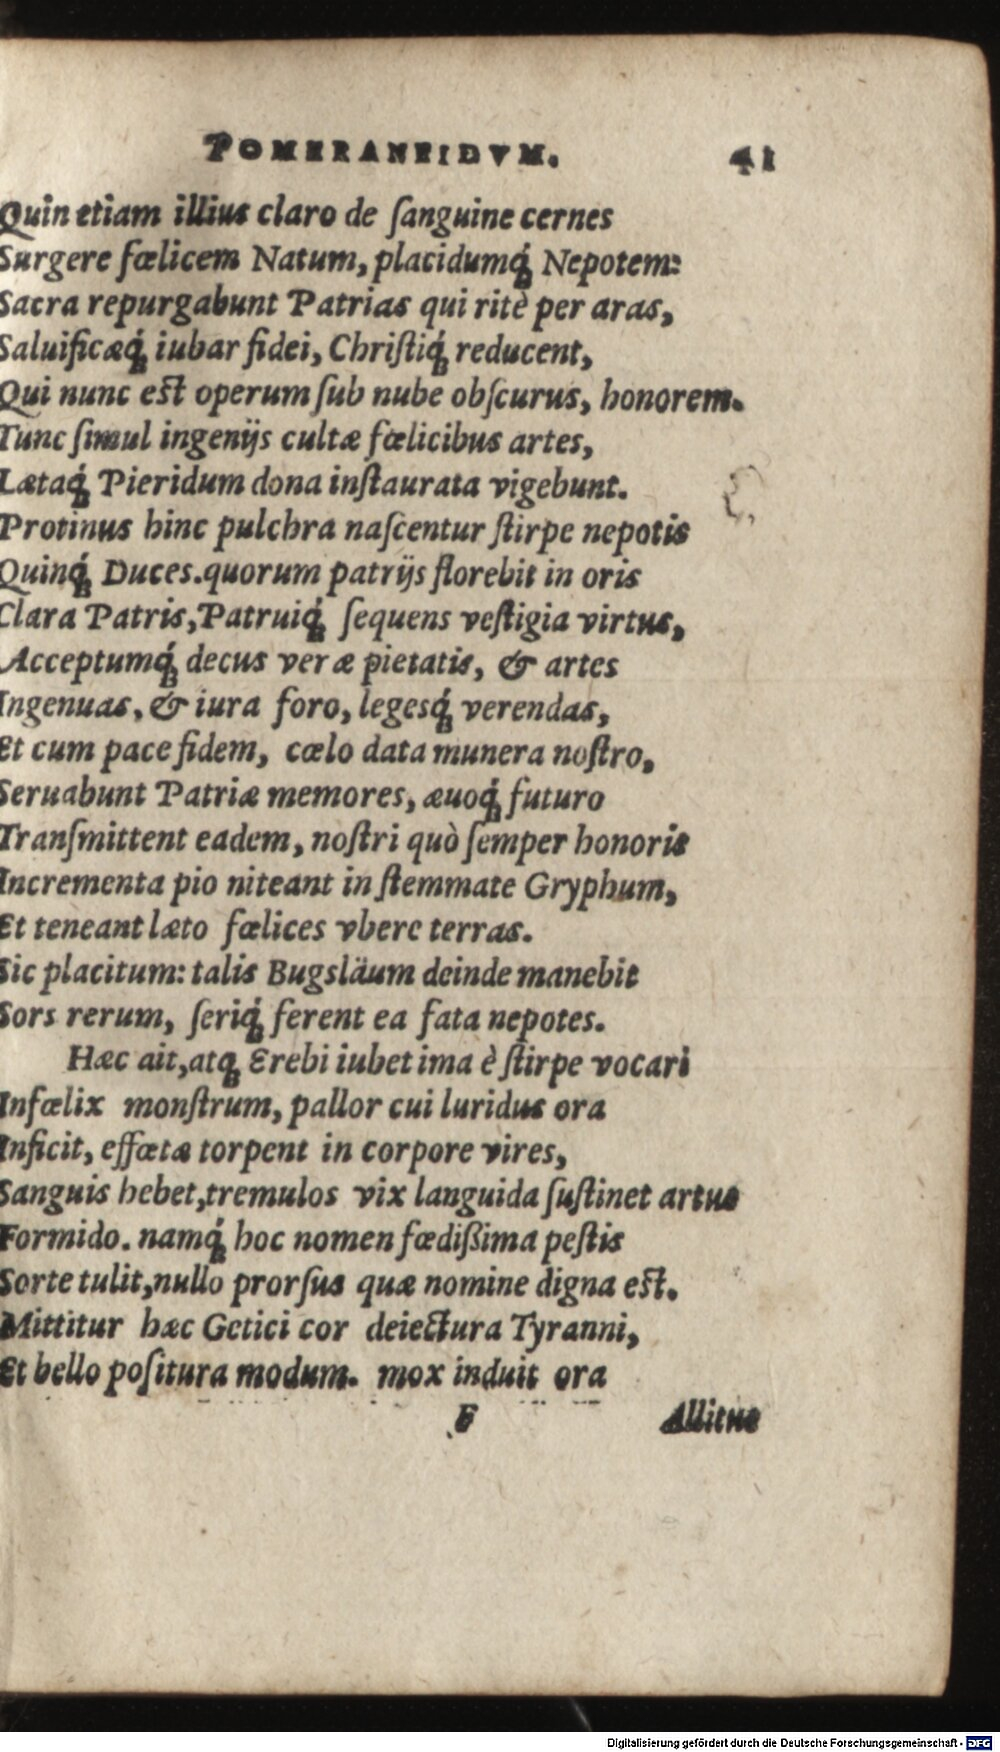 POMERANEIDVM. 41
Quin etiam illius claro de ſanguine cernes
Surgere fœlicem Natum, placidumq́; Nepotem:
Sacra repurgabunt Patrias qui ritè per aras,
Saluificæq́; iubar fidei, Chriſtiq́; reducent,
Qui nunc eſt operum ſub nube obſcurus, honorem.
Tunc ſimul ingenijs cultæ fœlicibus artes,
Lætaq́; Pieridum dona inſtaurata vigebunt.
Protinus hinc pulchra naſcentur ſtirpe nepotis
Quinq́; Duces. quorum patrijs florebit in oris
Clara Patris, Patruiq́; ſequens veſtigia virtus,
Acceptumq́; decus veræ pietatis, & artes
Ingenuas, & iura foro, legesq́; verendas,
Et cum pace fidem, cœlo data munera noſtro,
Seruabunt Patriæ memores, æuoq́; futuro
Tranſmittent eadem, noſtri quò ſemper honoris
Incrementa pio niteant in ſtemmate Gryphum,
Et teneant læto fœlices vbere terras.
Sic placitum: talis Bugsläum deinde manebit
Sors rerum, ſeriq́; ferent ea fata nepotes.
Hæc ait, atq; Erebi iubet ima è ſtirpe vocari
Infœlix monſtrum, pallor cui luridus ora
Inficit, effœtæ torpent in corpore vires,
Sanguis hebet, tremulos vix languida ſuſtinet artus
Formido. namq́; hoc nomen fœdißima peſtis
Sorte tulit, nullo prorſus quæ nomine digna eſt.
Mittitur hæc Getici cor deiectura Tyranni,
Et bello poſitura modum. mox induit ora
F Allitus
Digitalisierung gefördert durch die Deutsche Forschungsgemeinschaft - DFG